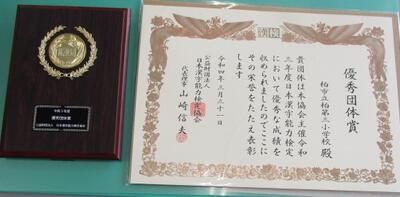 優秀団体賞
柏市立柏第三小学校 殿
貴団体は本協会主催令和
三年度日本漢字能力検定
において優秀な成績を
収められましたのでここに
その栄誉をたたえ表彰
します
令和四年三月三十一日
公益財団法人
日本漢字能力検定協会
代表理事 山崎信夫
優秀団体賞